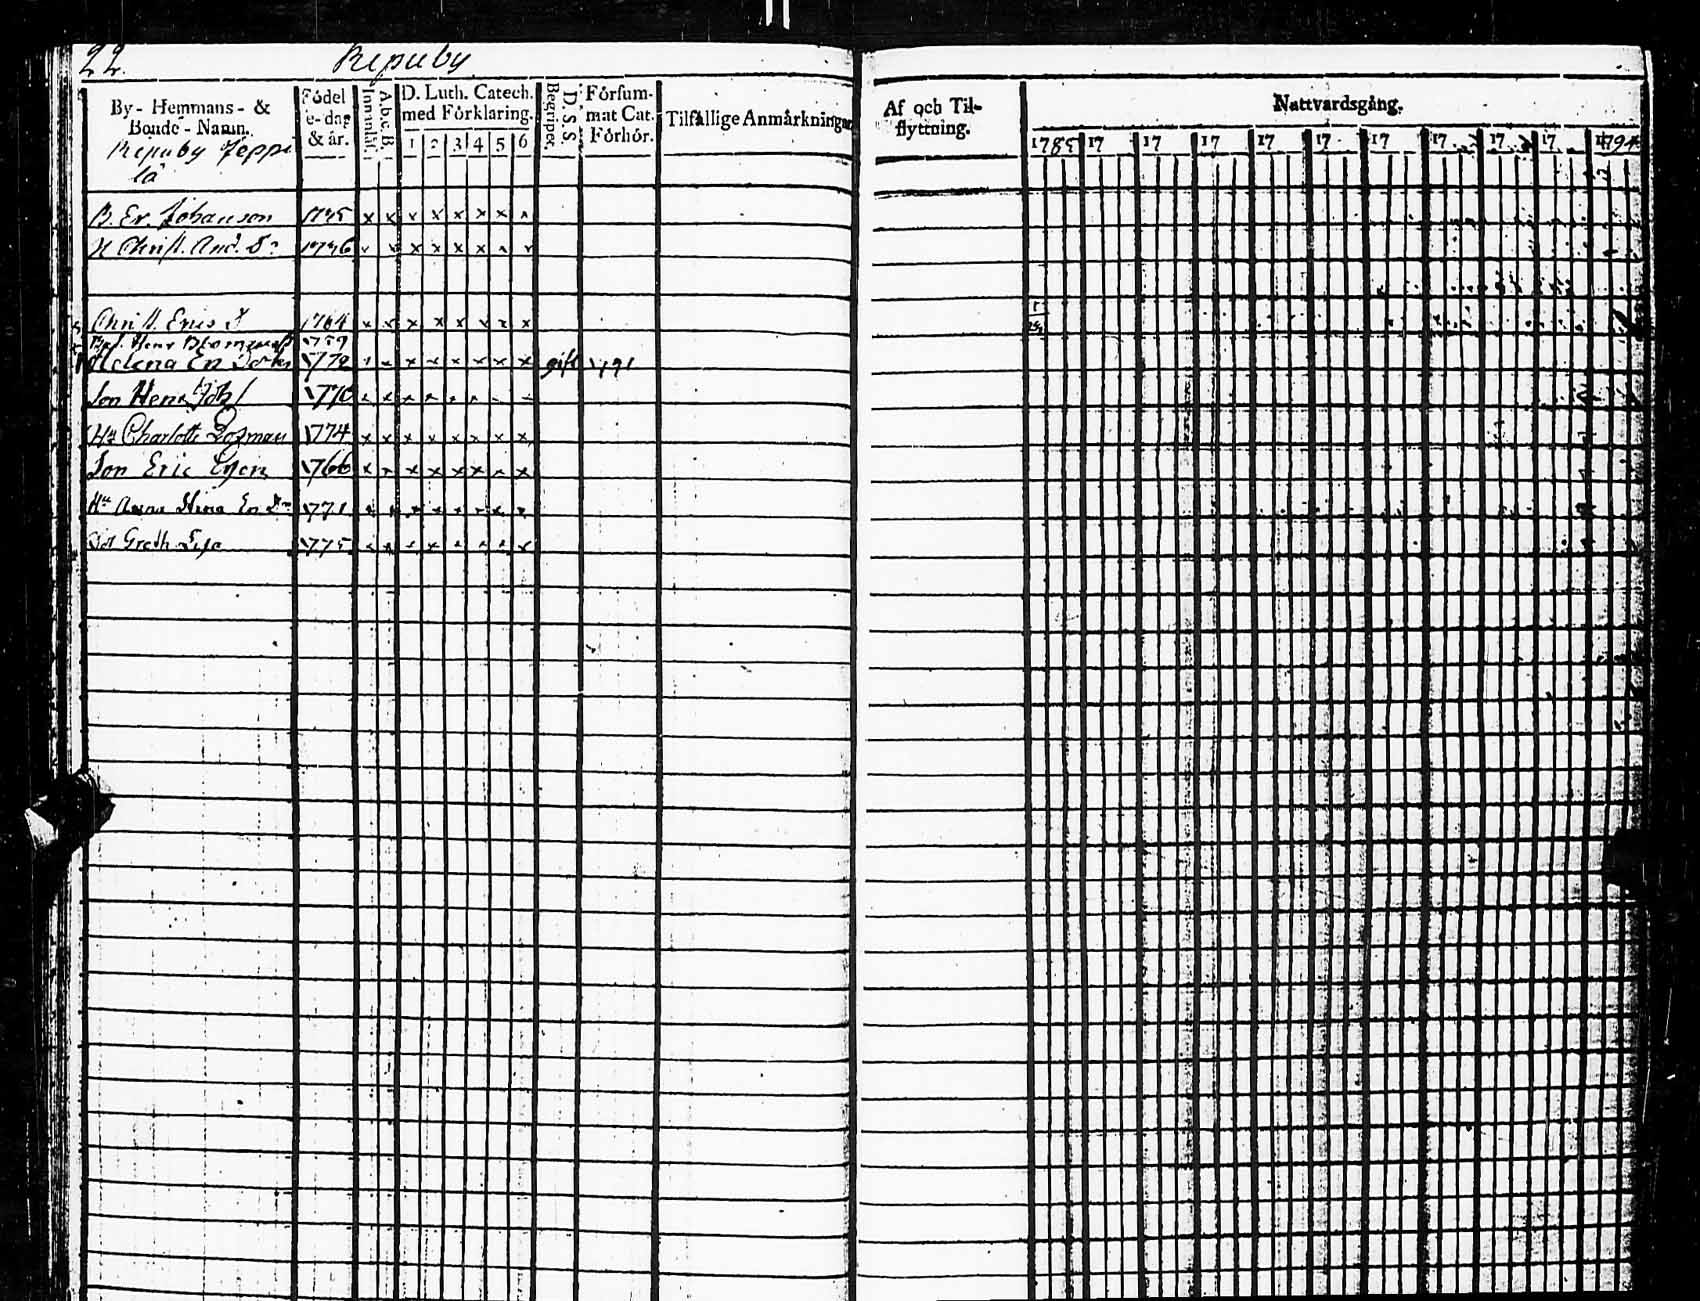 22. Repuby
By- Hemmans- & Bonde-Namn.
Födelse-dag & år.
Innanläsn.
A.b.c. B.
D. Luth. Catech. med Förklaring.
1 2 3 4 5 6
D. S. S. Begripet.
Försummat Cat. Förhör.
Tilfällige Anmärkningar
Af och Tilflyttning.
Nattvardsgång.
1785 17 17 17 17 17 17 17 17 17 1794
Repuby Jeppi
lä
B. Er. Johanson 1745 x x x x x x x x
H Christ. And. D. 1746 x x x x x x x x
Christ. Ers D 1764 x x x x x x x x
Henr Blomqvist 1759
Helena Er Dotter 1772 x x x x x x x x gift 1791
Son Henr Joh 1770 x x x x x x x x
Hu Charlotte 1774 x x x x x x x x
Son Eric 1766 x x x x x x x x
Hu Anna Stina Er Dr 1771 x x x x x x x x
Dot Greth Lisa 1775 x x x x x x x x